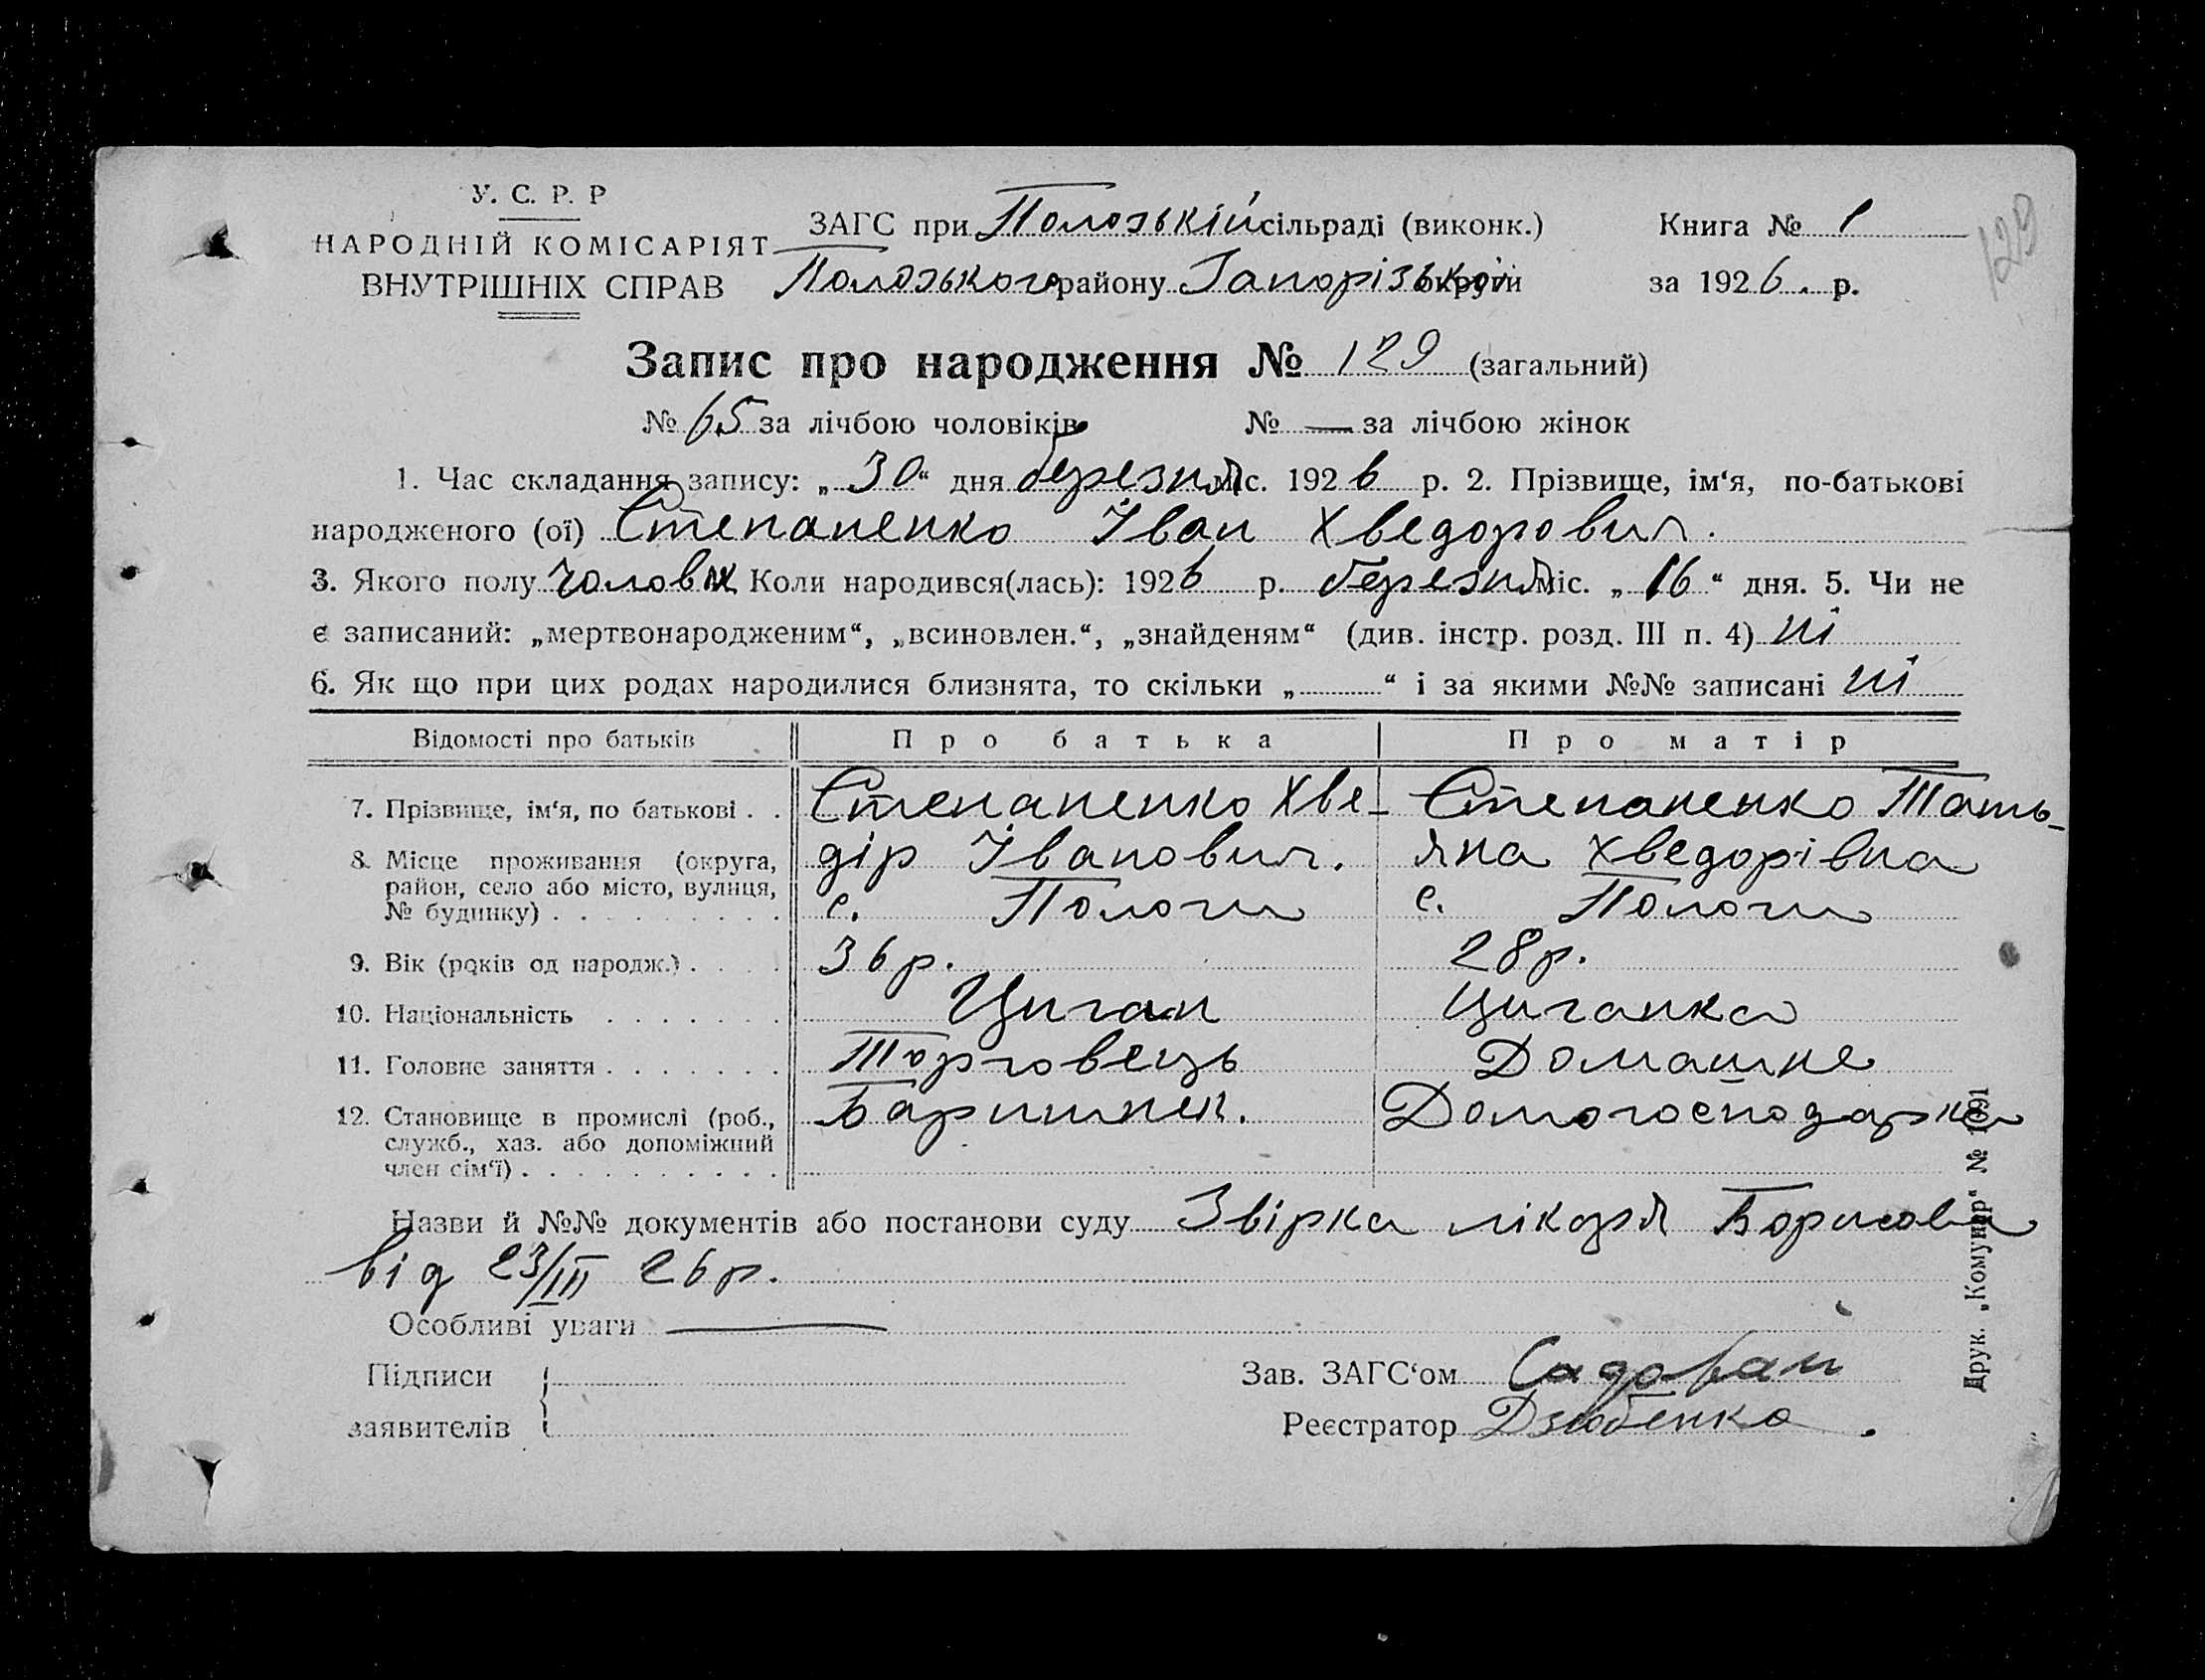 У. С. Р. Р
НАРОДНІЙ КОМІСАРІЯТ
ВНУТРІШНІХ СПРАВ
ЗАГС при Полозькій сільраді (виконк.)
Полозького району Запорізької округи
Книга № 1
за 1926. р.
129
Запис про народження № 129 (загальний)
№ 65 за лічбою чоловіків № — за лічбою жінок
1. Час складання запису: „30“ дня березня міс. 1926 р. 2. Прізвище, ім‘я, по-батькові
народженого (ої) Степаненко Іван Хведорович.
3. Якого полу чоловік Коли народився(лась): 1926 р. березня міс. „16“ дня. 5. Чи не
є записаний: „мертвонародженим“, „всиновлен.“, „знайденям“ (див. інстр. розд. III п. 4) ні
6. Як що при цих родах народилися близнята, то скільки „ “ і за якими №№ записані ні
Відомості про батьків Про батька Про матір
7. Прізвище, ім‘я, по батькові . . Степаненко Хве- Степаненко Тать-
8. Місце проживання (округа, дір Іванович. яна Хведорівна
район, село або місто, вулиця,
№ будинку) . . . . . . . . . с. Пологи с. Пологи
9. Вік (років од народж.) . . . . 36 р. 28 р.
10. Національність . . . . . . . Циган Циганка
11. Головне заняття . . . . . . . Торговець Домашне
12. Становище в промислі (роб., Баришник. Домогосподарка
служб., хаз. або допоміжний
член сім‘ї) . . . . . . . . . .
Назви й №№ документів або постанови суду Звірка лікаря Борисова
від 23/III 26 р.
Особливі уваги —
Підписи
заявителів
Зав. ЗАГС‘ом Садовай
Реєстратор Дзюбенко.
Друк. „Комунар“ № 1091